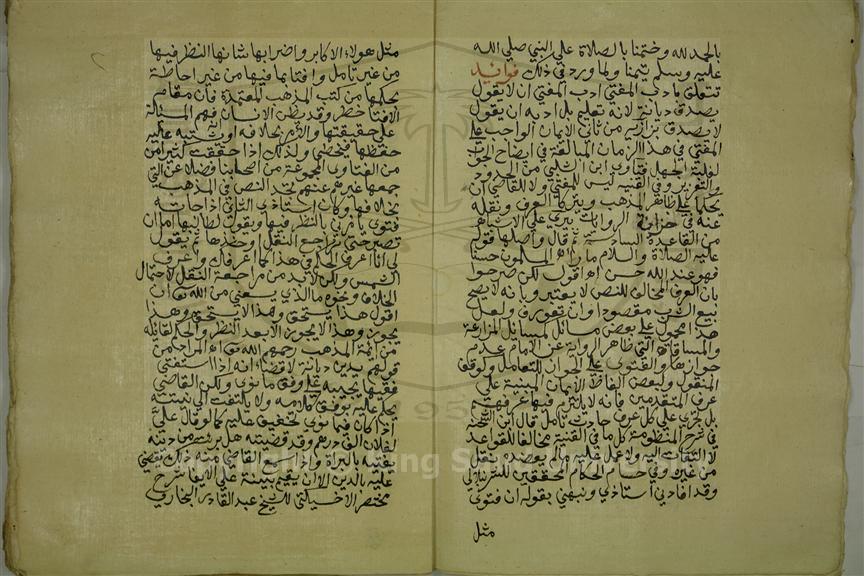 بالحمد لله وختمنا بالصلاة على النبي صلي الله
عليه وسلم تيمنا ولما ورد في ذلك فوائد
تتعلق بادب المفتي ادب المفتي ان لا يقول
يصدق ديانة لانه تعليم بل ادبه ان يقول
لا يصدق بزازيه من ثاني الايمان الواجب علي
المفتي في هذا الزمان المبالغة في ايضاح الجواب
لغلبة الجهل فتاوي ابن الشلبي من الحدود
والتعزير وفي القنيه ليس للمفتي ولا للقاضي ان
يحكما علي ظاهر المذهب ويتركا العرف ونقله
عنه في خزانة الروايات بيري على الاشباه
من القاعدة السادسة ثم قال واصلها قوله
عليه الصلاة والسلام ما رءاه المسلمون حسنا
فهو عند الله حسن اه اقول لكن صرحوا
بان العرف المخالف للنص لا يعتبر وبانه لا يصح
بيع الشرب مقصودا وان تعورف ولعل
هذا محمول علي بعض مسائل كمسائل المزارعة
والمساقاة التي ظاهر الرواية عن الامام عدم
جوازها والفتوي علي الجواز للتعامل وكوقف
المنقول وبعض الفاظ الايمان المبنية على
عرف المتقدمين فانه لا يلتزم فيها عرفهم
بل يجري علي كل عرف حادث تامل قال ابن الشحنه
في شرح المنظومة كل ما في القنية مخالفا للقواعد
لا التفات اليه ولا عمل عليه ما لم يعضده نقل
من غيره وفي حسام الحكام المحققين للشرنبلالي
وقد افادني استاذي ونبهني بقوله ان فتوي
مثل
مثل هولاء الاكابر واضرابها شانها النظر فيها
من غير تامل وافتا بما فيها من غير احاطة
بحكمها من كتب المذهب المعتمدة فان مقام
الافتا خطر وقد يظن الانسان فهم المسئالة
علي حقيقتها والامر بخلافه او يشتبه عليه
حفظها فيخطي ولذلك اذا حققت كثيرا من
من الفتاوي المجموعة من اصحابنا فضلا عن التي
جمعها غيرهم عنهم تجد النص في المذهب
بخلافها وكان استاذي الثاني اذا جاءته
فتوي يامرني بالنظر فيها ويقول لطالبها امران
تصبر حتي نراجع النقل او خذها ثم يقول
لي انا اعرف الحكم في هذا كما اعرفك واعرف
الشمس ولكن لا بد من مراجعة النقل لاحتمال
الخلاف ونحوه ما الذي يسعني من الله ان
اقول هذا يستحق وهذا لا يستحق وهذا
يجوز وهذا لا يجوز الا بعد النظر والحكم لقائله
من ايمة المذهب رحمهم الله اه المراد من
قولهم يدين ديانة لا قضا انه اذا استفتي
فقيها يجيبه علي وفق ما نوي ولكن القاضي
يحكم عليه بوفق كلامه ولا يلتفت الي نيته
اذا كان فيما نوي تخفيف عليه كما لو قال عليّ
لفلان الف درهم وقد قضيته هل برئت من دينه
يفتيه بالبراة واذا سمع القاضي منه ذلك يقضي
عليه بالدين الا ان يقيم بينة علي الايفا شرح
مختصر الاخسيكتي للشيخ عبد القادر البخاري